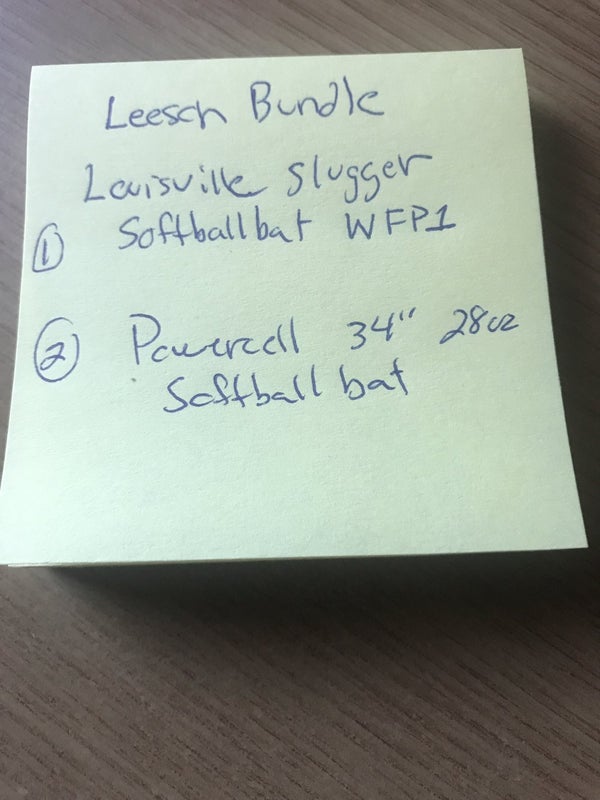 Leesch Bundle
Louisville Slugger
① Softball bat WFP1
② Powercell 34" 28oz
Softball bat